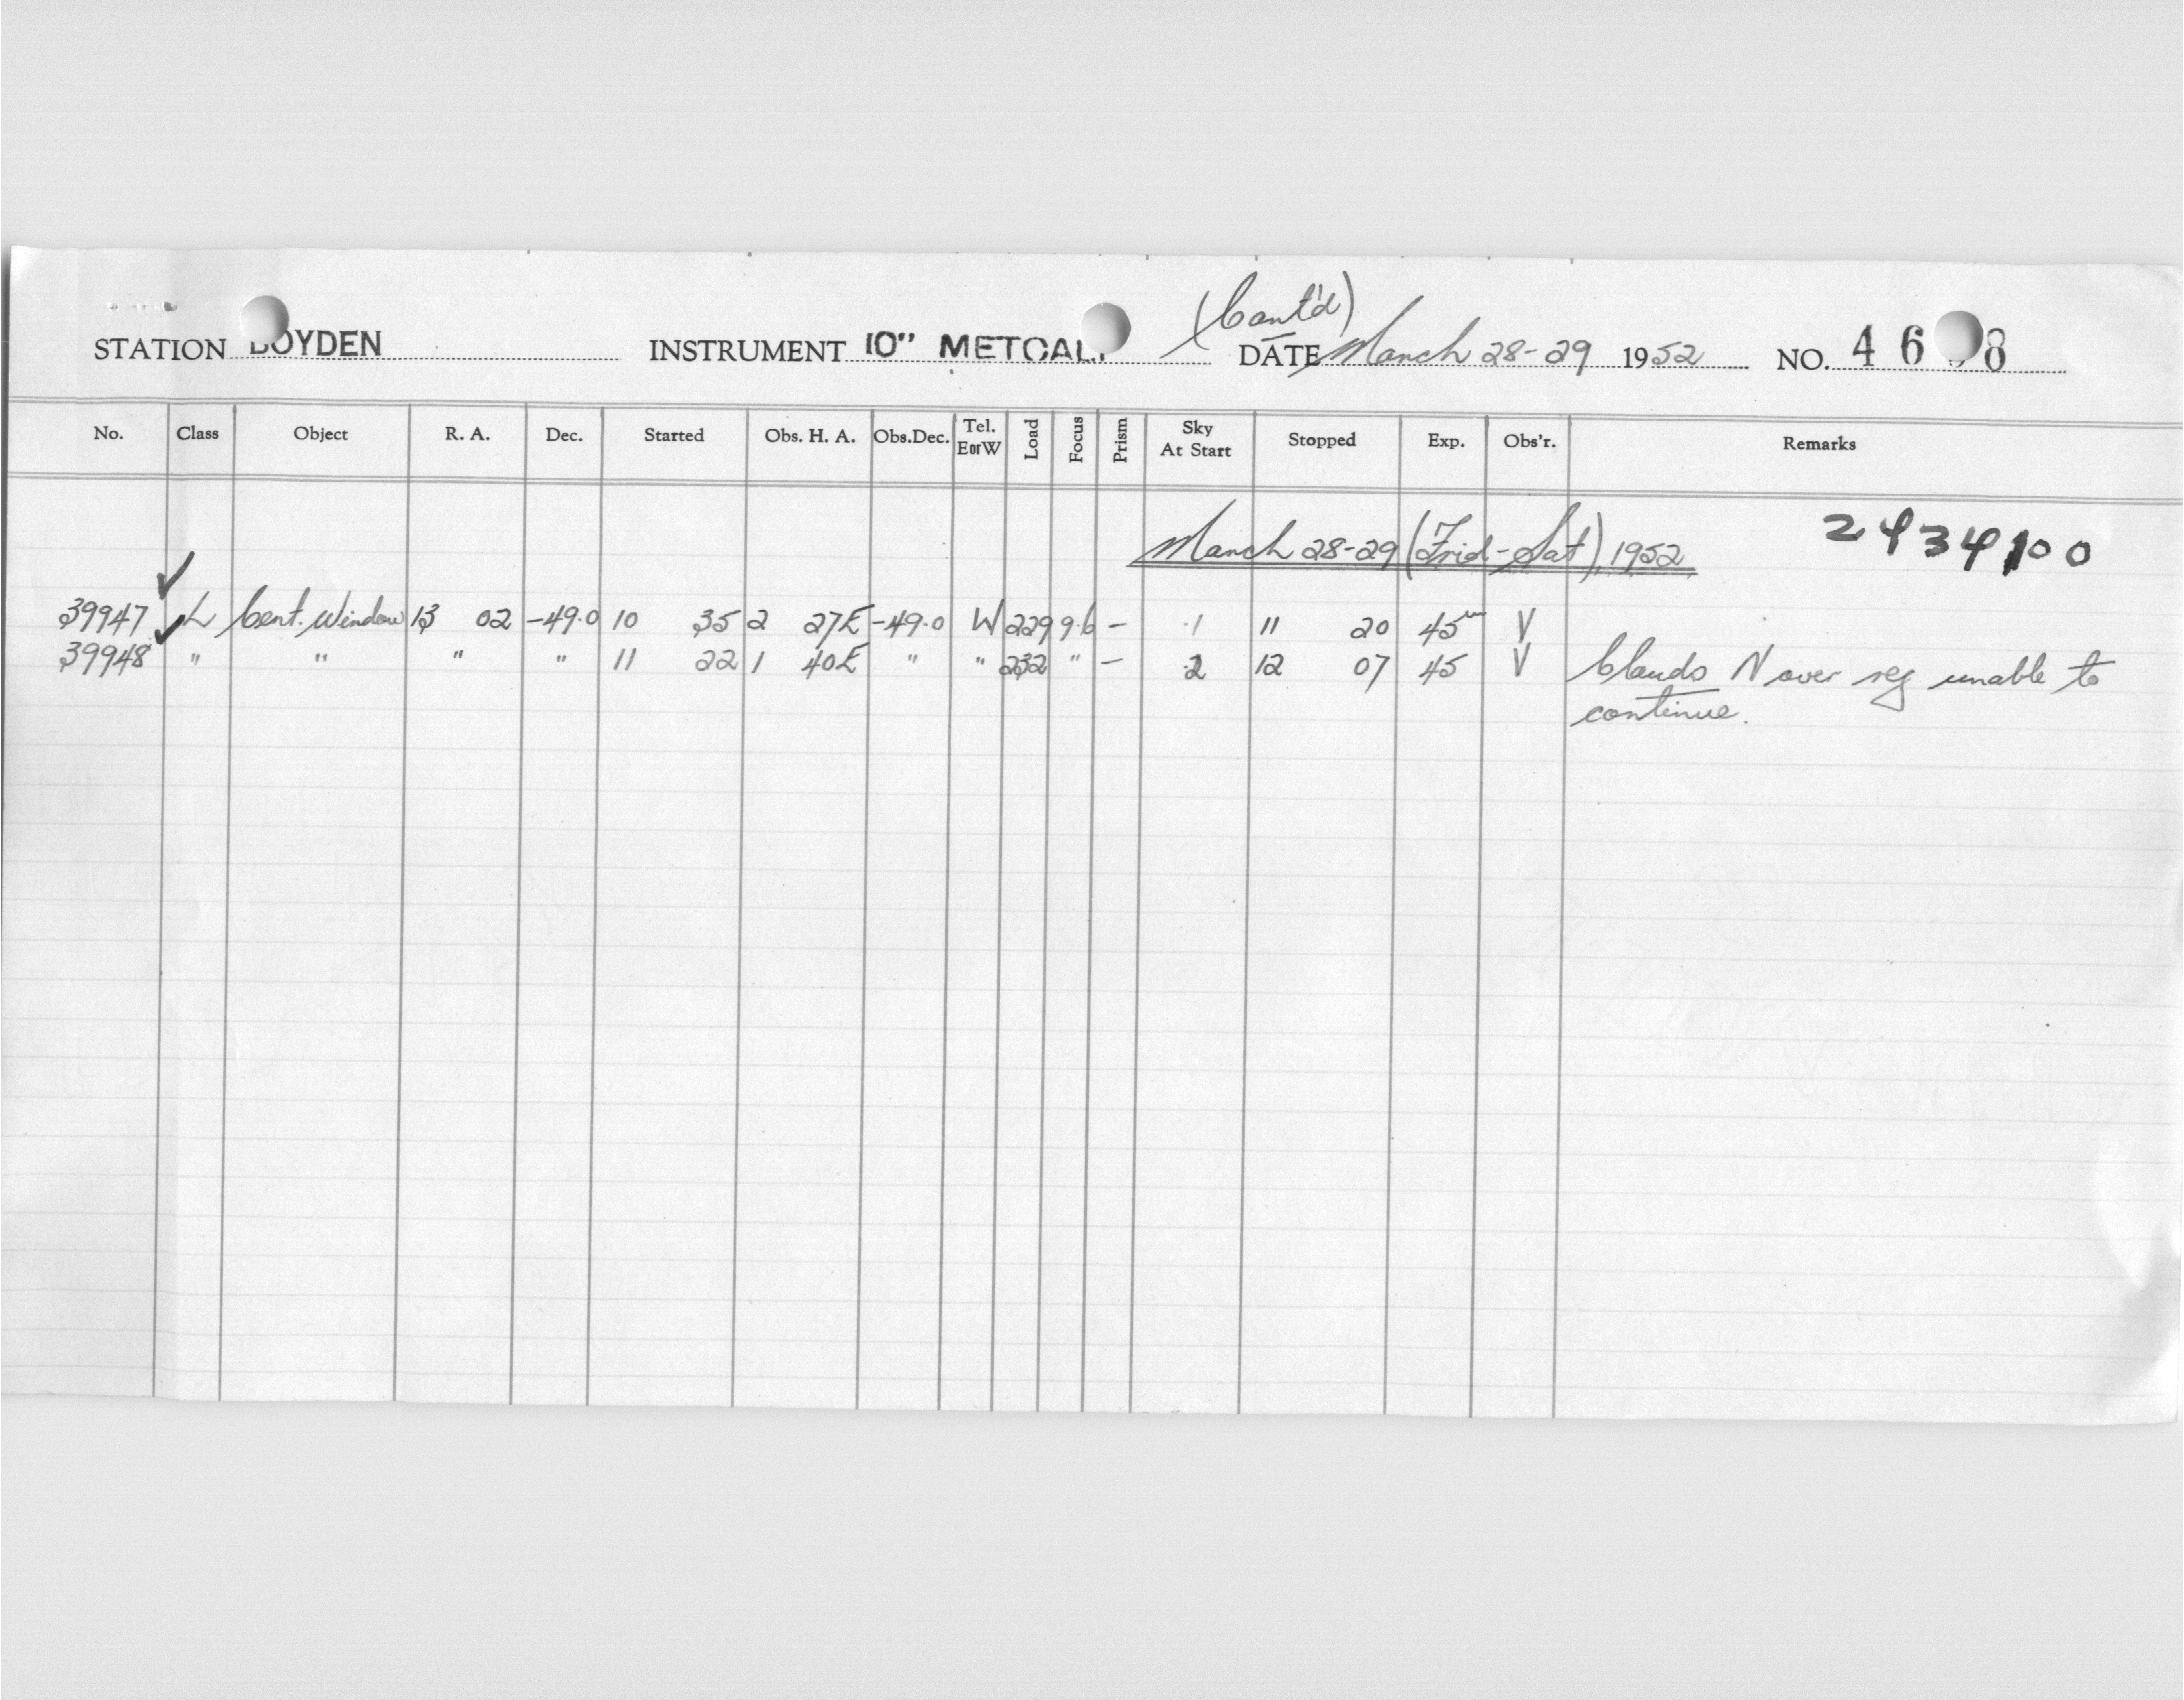 (Cont'd)
STATION BOYDEN INSTRUMENT 10" METCALF DATE March 28-29 1952 NO. 46 8
No. Class Object R. A. Dec. Started Obs. H. A. Obs.Dec. Tel. EorW Load Focus Prism Sky At Start Stopped Exp. Obs'r. Remarks
March 28-29 (Frid-Sat), 1952 2434100
39947 L Cent. Window 13 02 -49.0 10 35 2 27E -49.0 W 229 9.6 - .1 11 20 45m V
39948 " " " " 11 22 1 40E " " 232 " - .2 12 07 45 V Clouds N over reg unable to
continue.